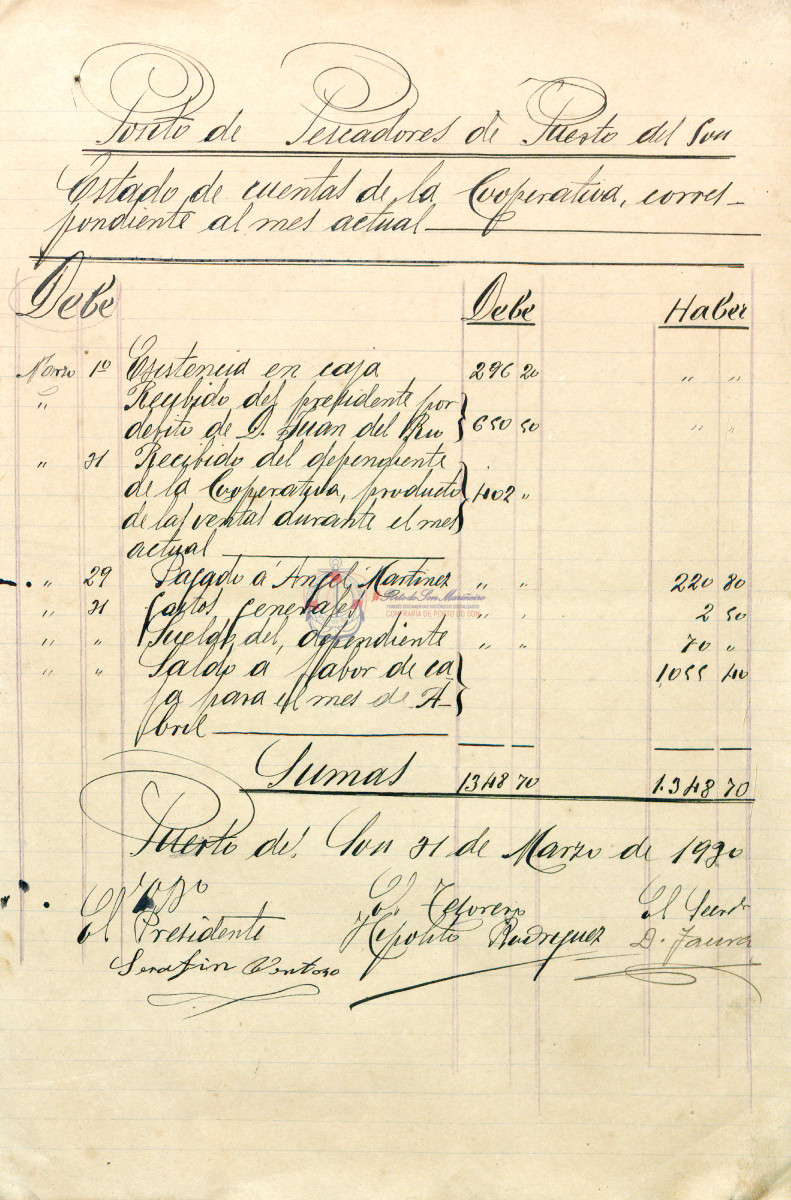 Posito de Pescadores de Puerto del Son
Estado de cuentas de la Cooperativa, corres-
pondiente al mes actual
Debe Debe Haber
Marzo 1º Existencia en caja 296 20 " "
" Recibido del presidente por
debito de D. Juan del Rio 650 50 " "
" 31 Recibido del dependiente
de la Cooperativa, producto 402 "
de las ventas durante el mes
actual
" 29 Pagado á Angel Martinez " " 220 80
" 31 Gastos generales " " 2 50
" " Sueldo del dependiente " " 70 "
" " Saldo a fabor de ca 1055 40
ja para el mes de A-
bril
Sumas 1348 70 1.348 70
Porto do Son Mariñeiro
CONFRARÍA DE PORTO DO SON
Puerto del Son 31 de Marzo de 1930
El Presidente El Tesorero El Secret
Serafin Ventoso Hipolito Rodriguez